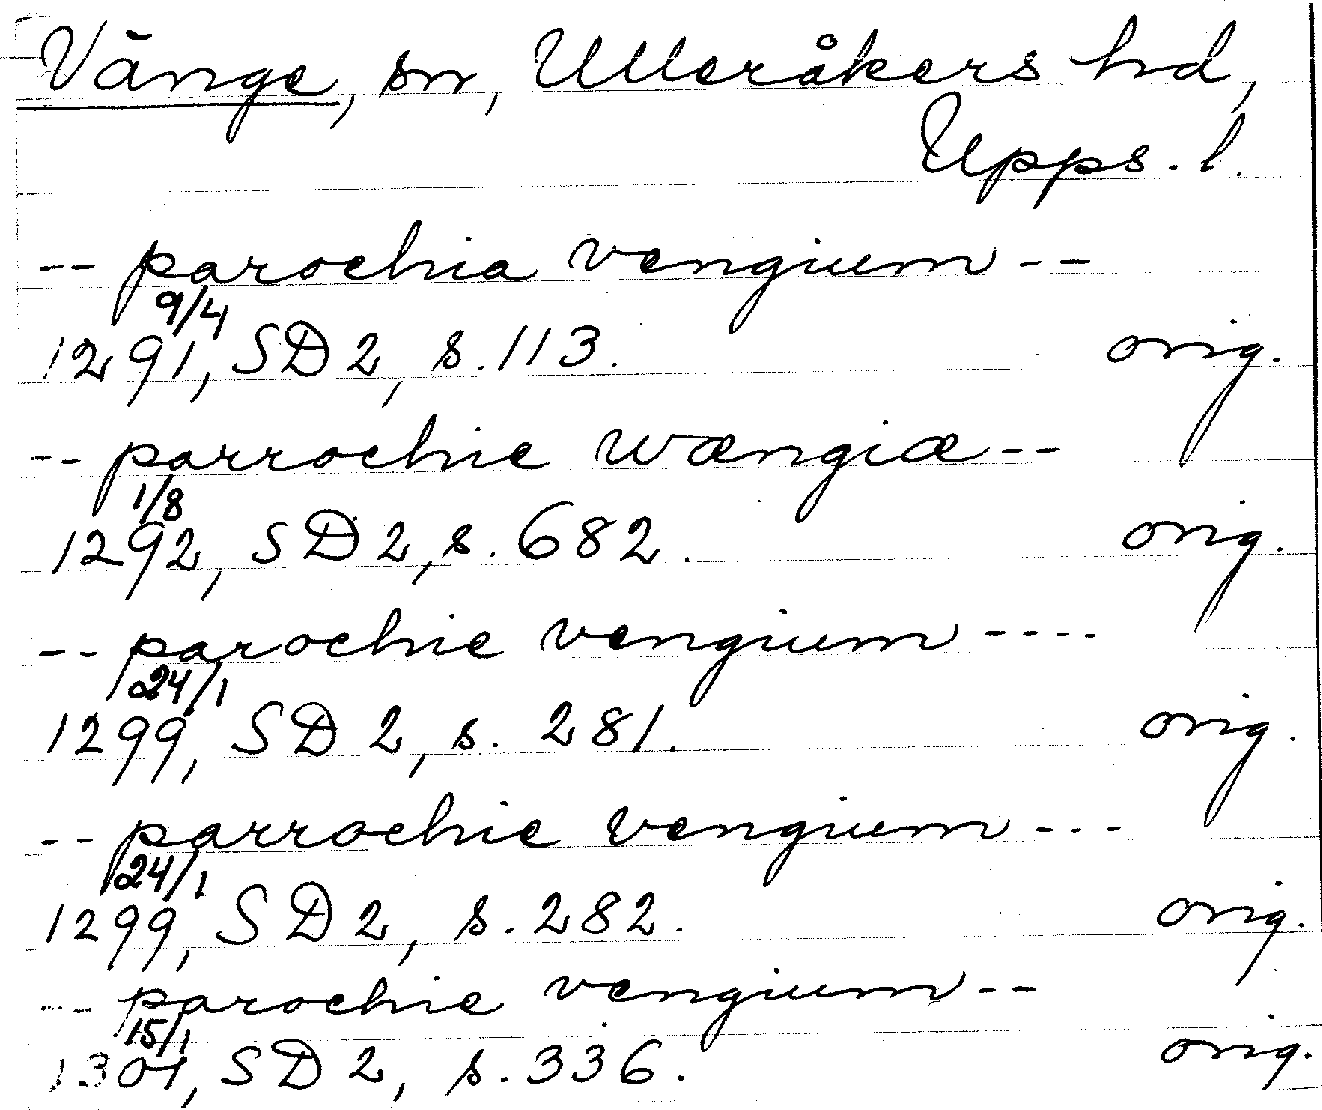 Vänge, sn, Ulleråkers hd,
Upps. l.
-- parochia vengium --
9/4
1291, SD 2, s. 113. orig.
-- parrochie wængiæ --
1/8
1292, SD 2, s. 682. orig.
-- parochie vengium ----
24/1
1299, SD 2, s. 281. orig.
-- parrochie vengium ---
24/1
1299, SD 2, s. 282. orig.
-- parochie vengium --
15/1
1301, SD 2, s. 336. orig.